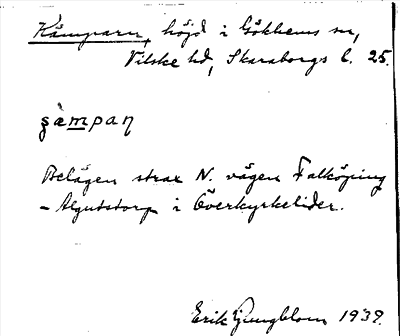 Kämparn, höjd i Gökhems sn,
Vilske hd, Skaraborgs l. 25.
şàmpaɳ
Belägen strax N. vägen Falköping
– Ålgutstorp i Överkyrkelider.
Erik Ljungblom 1939.